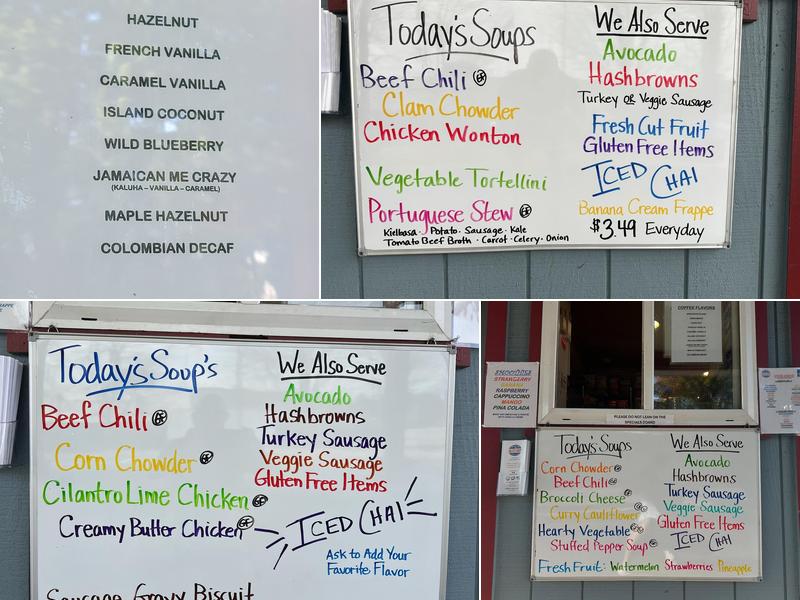 HAZELNUT
FRENCH VANILLA
CARAMEL VANILLA
ISLAND COCONUT
WILD BLUEBERRY
JAMAICAN ME CRAZY
(KALUHA – VANILLA – CARAMEL)
MAPLE HAZELNUT
COLOMBIAN DECAF
Today's Soups
Beef Chili GF
Clam Chowder
Chicken Wonton
Vegetable Tortellini
Portuguese Stew GF
Kielbasa · Potato · Sausage · Kale
Tomato Beef Broth · Carrot · Celery · Onion
We Also Serve
Avocado
Hashbrowns
Turkey or Veggie Sausage
Fresh Cut Fruit
Gluten Free Items
ICED CHAI
Banana Cream Frappe
$3.49 Everyday
Today's Soup's
Beef Chili GF
Corn Chowder GF
Cilantro Lime Chicken GF
Creamy Butter Chicken GF
Sausage Gravy Biscuit
We Also Serve
Avocado
Hashbrowns
Turkey Sausage
Veggie Sausage
Gluten Free Items
ICED CHAI
Ask to Add Your
Favorite Flavor
COFFEE FLAVORS
SMOOTHIE
STRAWBERRY
BANANA
RASPBERRY
CAPPUCCINO
MANGO
PINA COLADA
PLEASE DO NOT LEAN ON THE
SPECIALS BOARD
Today's Soups
Corn Chowder GF
Beef Chili GF
Broccoli Cheese GF
Curry Cauliflower GF
Hearty Vegetable GF
Stuffed Pepper Soup GF
We Also Serve
Avocado
Hashbrowns
Turkey Sausage
Veggie Sausage
Gluten Free Items
ICED CHAI
Fresh Fruit: Watermelon Strawberries Pineapple